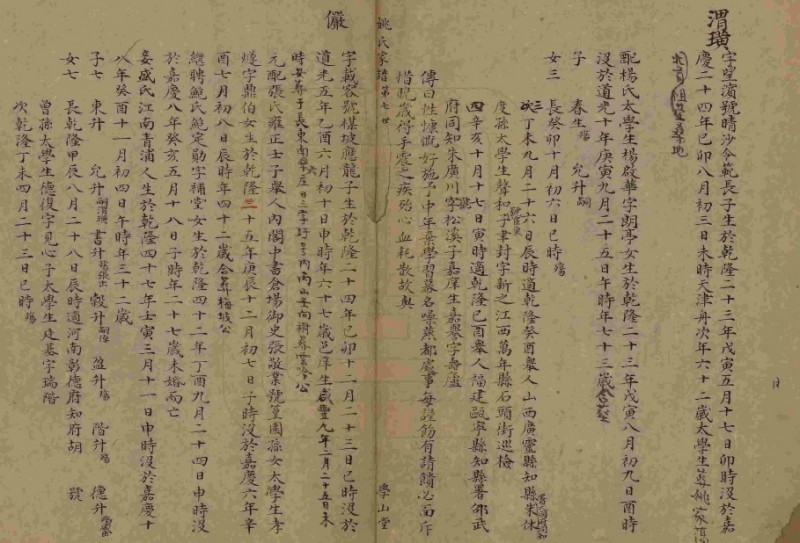 渭璜
字望濱號晴沙令範長子生於乾隆二十三年戊寅五月十七日卯時沒於嘉
慶二十四年己卯八月初三日未時天津舟次年六十二歲太學生
配楊氏太學生楊啟華字朗亭女生於乾隆二十三年戊寅八月初九日酉時
沒於道光十年庚寅九月二十五日午時年七十三歲
子 春生殤 允升
女三 長癸卯十月初六日巳時殤
次丁未九月二十六日辰時適乾隆癸酉舉人山西廣靈縣知縣朱休
度孫太學生聲和子聿封字新之江西萬年縣石頭街巡檢
四辛亥十月十七日寅時適乾隆己酉舉人福建甌寧縣知縣署邵武
府同知朱廣川字松溪子嘉庠生嘉譽字壽廬
傳曰性慷慨好施予中年棄學習幕名噪燕都處事每謹飭有請賕必面斥
惜晚歲得手震之疾殆心血耗散故與
姚氏家譜 第七世
學山堂
儼
字載容號楳坡應龍子生於乾隆二十四年己卯十二月二十三日巳時沒於
道光五年乙酉六月初十日申時年六十七歲邑庠生咸豐九年二月二十五日未
時安葬于長東南
元配張氏雍正壬子舉人內閣中書倉場御史張敬業號篁園孫女太學生孝
燧字鼎伯女生於乾隆三十五年庚辰十二月初七日子時沒於嘉慶六年辛
酉七月初八日辰時年四十二歲合葬梅坡公
繼聘鮑氏鮑定勛字補堂女生於乾隆四十二年丁酉九月二十四日申時沒
於嘉慶八年癸亥五月十八日子時年二十七歲未婚而亡
妾盛氏江南青浦人生於乾隆四十七年壬寅三月十一日申時沒於嘉慶十
八年癸酉十一月初四日午時年三十二歲
子七 東升 允升嗣渭璜 書升 穀升 盈升殤 階升殤 德升
女七 長乾隆甲辰八月二十八日辰時適河南彰德府知府胡 號
曾孫太學生德復字見心子太學生廷基字瑞階
次乾隆丁未四月二十三日巳時殤